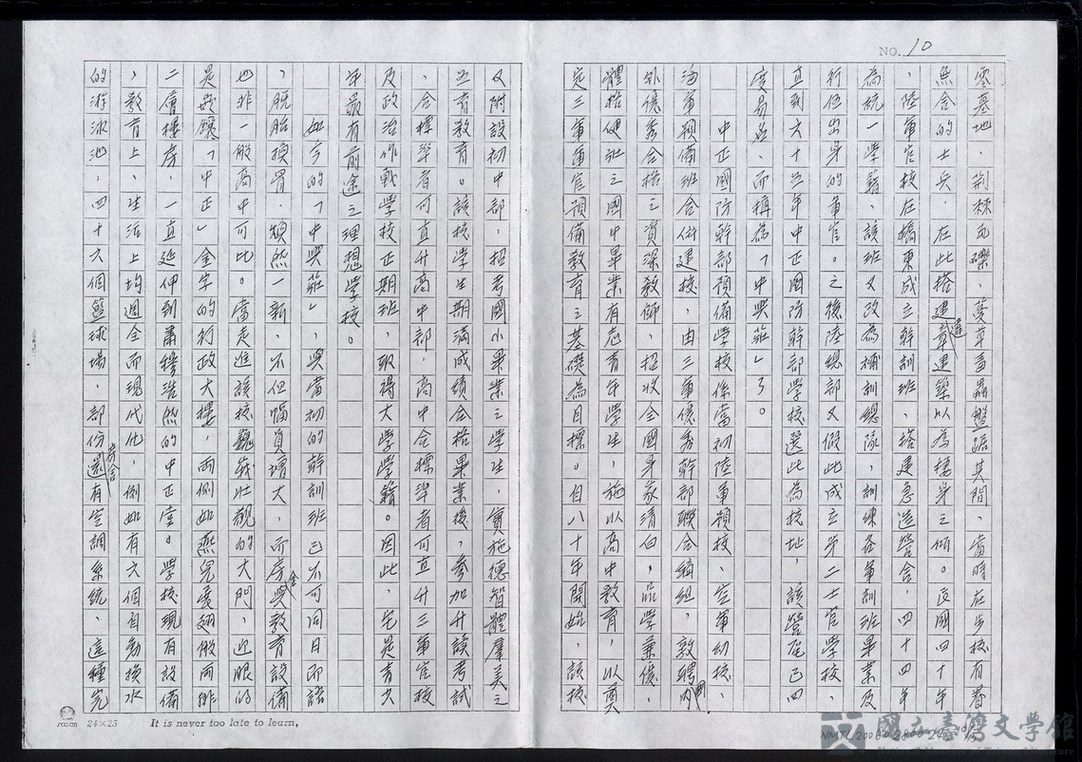 NO. 10
零墓地，荆棘瓦礫，蔓草畜蟲盤踞其間，當時在步校有眷
無舍的士兵，在此搭建違章建築以為棲身之傾。民國四十年
，陸軍官校在橋東成立幹訓班，搭建急造營舍，四十四年
為統一學籍，該班又改為補訓總隊，訓練各軍訓班畢業及
行伍出身的軍官。之後陸總部又假此成立第二士官學校，
直到六十五年中正國防幹部學校選此為校址，該營區已四
度易名，而稱為「中興莊」了。
中正國防幹部預備學校係當初陸軍預校、空軍幼校、
海軍預備班合併建校，由三軍優秀幹部聯合編組，敦聘國內
外優秀合格之資深教師，招收全國身家清白，品學兼優，
體格健壯之國中畢業有志青年學生，施以高中教育，以奠
定三軍軍官預備教育之基礎為目標。自八十年開始，該校
又附設初中部，招考國小畢業之學生，實施德智體羣美之
五育教育。該校學生期滿成績合格畢業後，參加升讀考試
，合標準者可直升高中部，高中合標準者可直升三軍官校
及政治作戰學校正期班，取得大學學籍。因此，它是青少
年最有前途之理想學校。
如今的「中興莊」，與當初的幹訓班已不可同日而語
，脫胎換骨，煥然一新，不但幅員增大，而房舍與教育設備
也非一般高中可比。當走進該校巍峨壯觀的大門，近眼的
是嵌鑲「中正」金字的行政大樓，兩側如燕兒展翅般兩排
二層樓房，一直延伸到肅穆浩然的中正堂。學校現有設備
，教育上、生活上均週全而現代化，例如有六個自動換水
的游泳池，四十六個籃球場，部份房舍還有空調系統，這種完
24×25 It is never too late to learn,
國立臺灣文學館